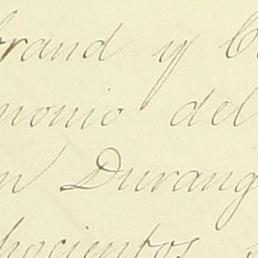 brand y C
monio del
n Durang
hocientos